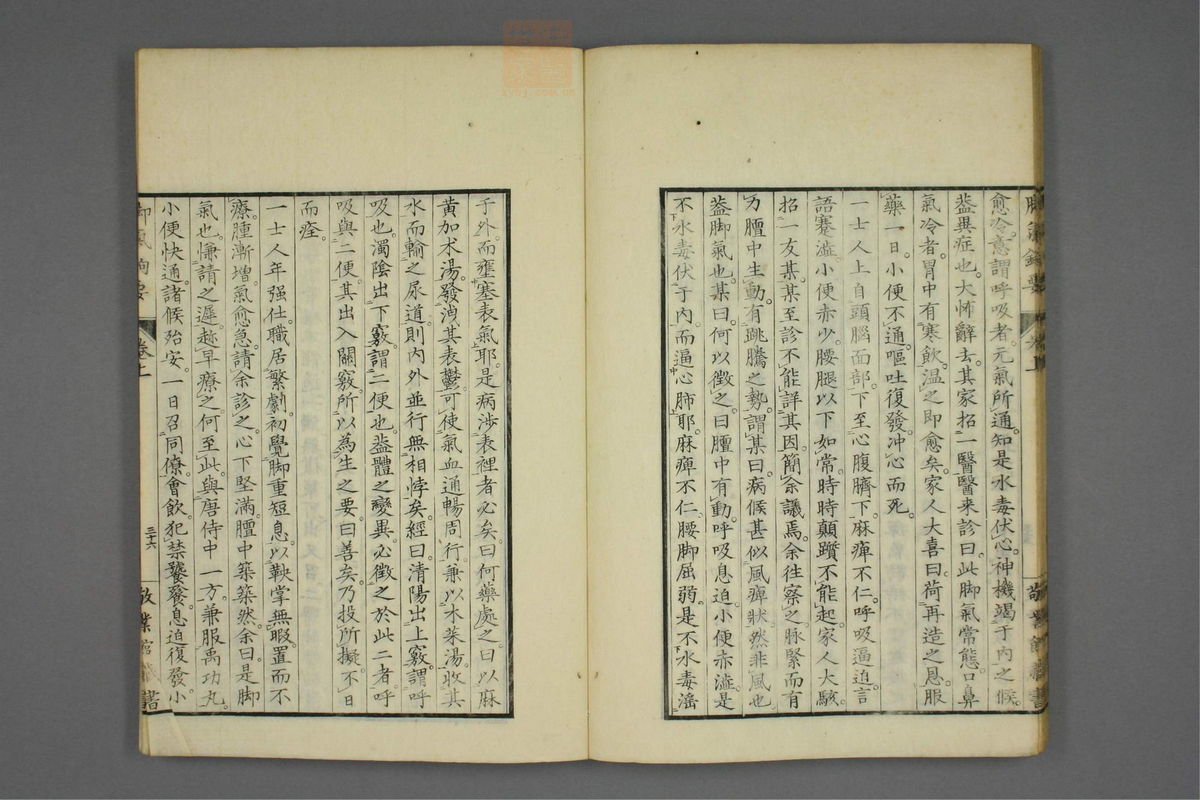 愈冷意謂呼吸者元氣所通知是水毒伏心神機竭于内之候
葢異症也大怖辭去其家招一醫醫来診曰此脚氣常態口鼻
氣冷者胃中有寒飲温之即愈矣家人大喜曰荷再造之恩服
藥一日小便不通嘔吐復發冲心而死
一士人上自頭腦面部下至心腹臍下麻痺不仁呼吸逼迫言
語蹇澁小便赤少腰腿以下如常時時顛躓不能起家人大駭
招一友某某至診不能詳其因簡余議焉余往察之脉緊而有
力膻中生動有跳騰之勢謂某曰病候甚似風痺狀然非風也
葢脚氣也某曰何以徴之曰膻中有動呼吸息迫小便赤澁是
不水毒伏于内而逼心肺耶麻痺不仁腰脚屈弱是不水毒滛
于外而壅塞表氣耶是病渉表裡者必矣曰何藥處之曰以麻
黄加朮湯發洩其表鬱可使氣血通暢周行兼以木茱湯收其
水而輸之尿道則内外並行無相悖矣經曰清陽出上竅謂呼
吸也濁陰出下竅謂二便也葢體之變異必徴之於此二者呼
吸與二便其出入關竅所以為生之要曰善矣乃投所擬不日
而痊
一士人年强仕職居繁劇初覺脚重短息以鞅掌無暇置而不
療腫漸增氣愈急請余診之心下堅滿膻中築築然余曰是脚
氣也慊請之遲趂早療之何至此與唐侍中一方兼服禹功丸
小便快通諸候殆安一日召同僚會飲犯禁饕餮息迫復發小
卷上
三十六